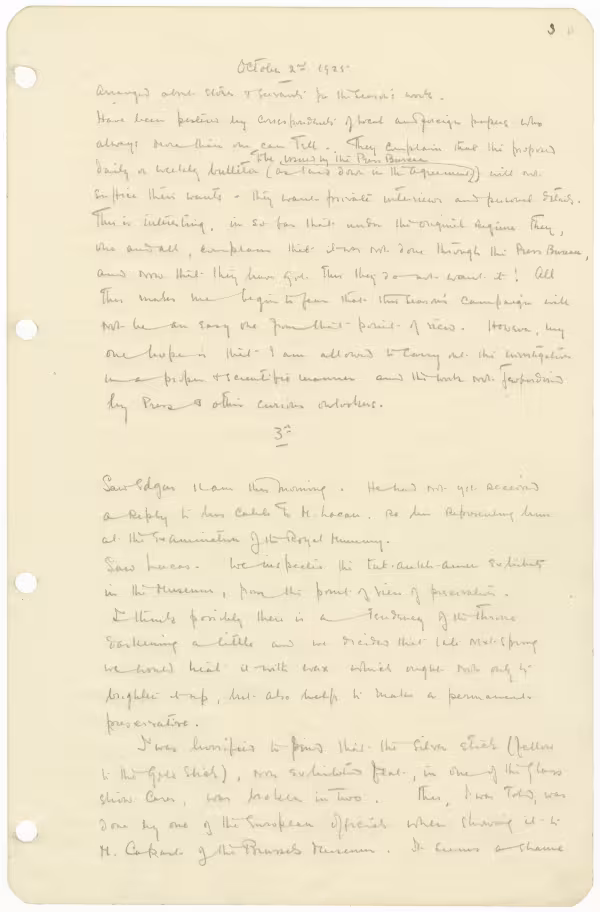 3
October 2nd 1925
Arranged about stores & servants for the season's work.
Have been pestered by correspondents of local and foreign papers who
always more than one can tell. They complain that the proposed
the, issued by the Press Bureau
daily or weekly bulletin (as laid down in the agreement) will not
suffice their wants - they want private interviews and personal details.
This is interesting, in so far that under the original regime they,
one and all, complain that it was not done through the Press Bureau,
and now that they have got this they do not want it! All
this makes me begin to fear that this season's campaign will
not be an easy one from that point of view. However, my
one hope is that I am allowed to carry out the investigation
in a proper & scientific manner and the work not
by Press & other curious onlookers.
3rd
Saw Edgar 11 am this morning. He had not yet received
a reply to his cable to M. Lacau, re his representing him
at the examination of the Royal Mummy.
Saw Lucas. We inspected the Tut-ankh-amen exhibits
in the Museum, from the point of view of preservation.
I think possibly there is a tendency of the throne
darkening a little and we decided that late next spring
we would treat it with wax which ought not only to
brighten it up, but also help to make a permanent
preservative.
I was horrified to find that the silver stick (fellow
to the Gold Stick), now exhibited flat, in one of the glass
show cases, was broken in two. This, I was told, was
done by one of the European officials when showing it to
M. Capart of the Brussels Museum. It seems a shame